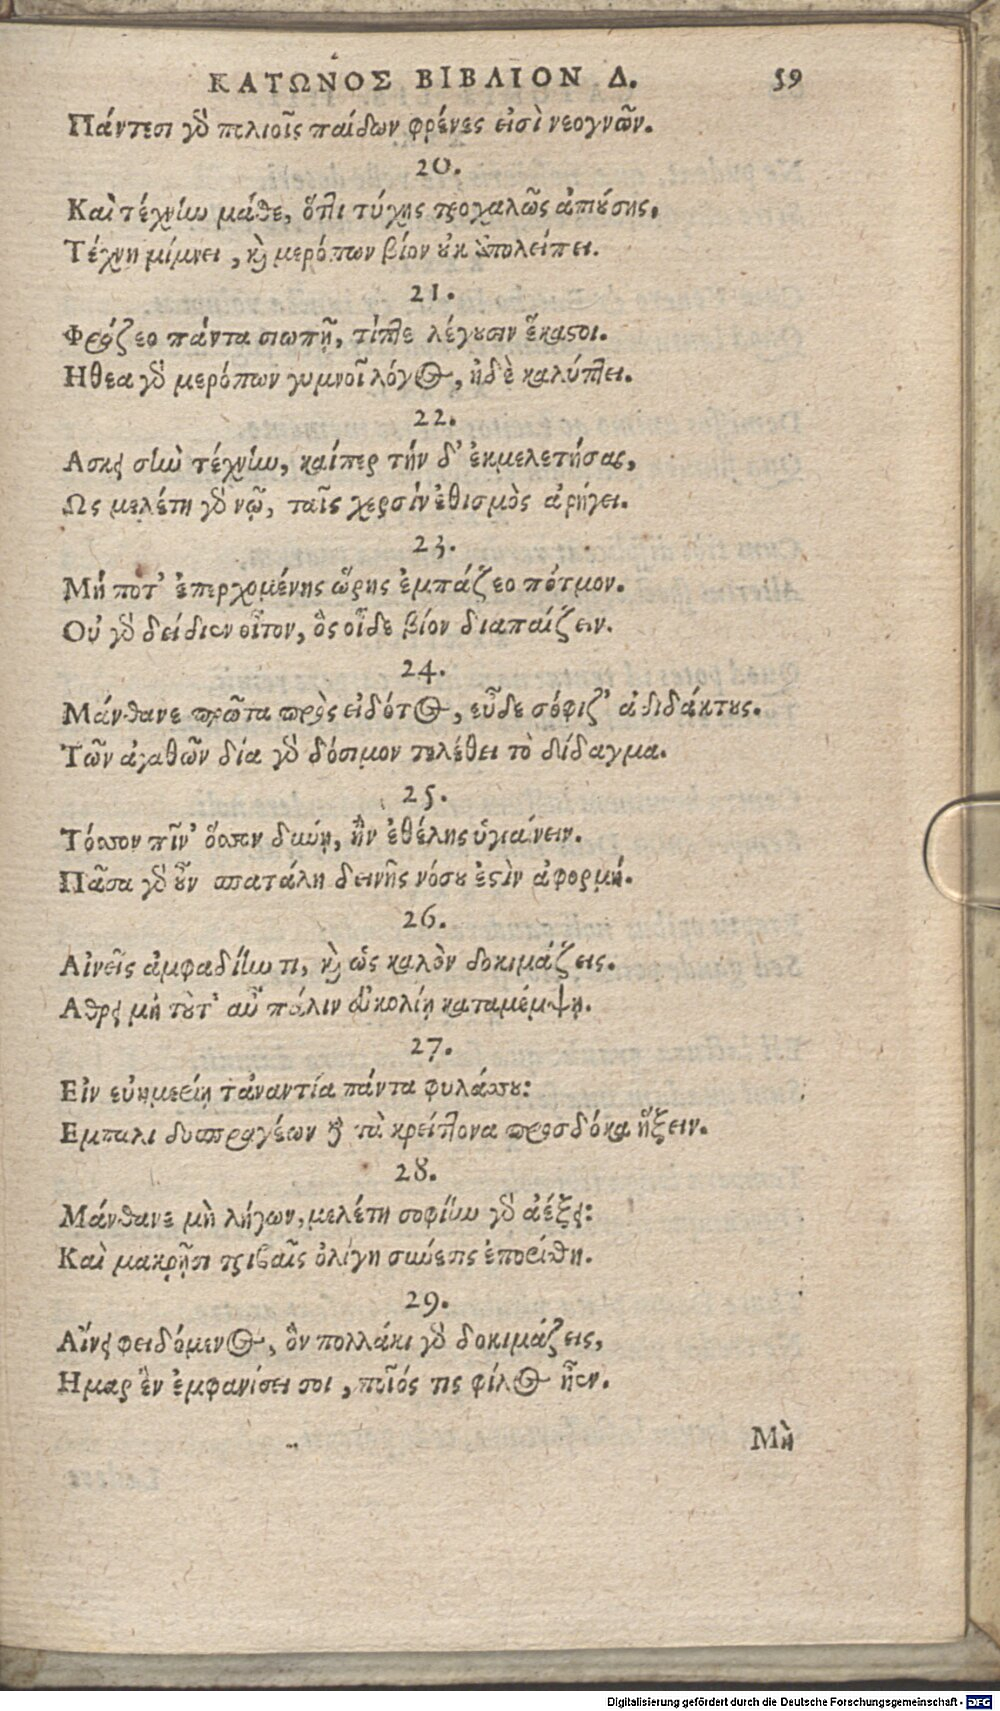 ΚΑΤΩΝΟΣ ΒΙΒΛΙΟΝ Δ. 59
Πάντεσι γὸ πελιοῖς παίδων φρένες εἰσὶ νεογνῶν.
20.
Καὶ τέχνην μάθε, ὅττι τύχης τροχαλῶς ἀπιούσης,
Τέχνη μίμνει, καὶ μερόπων βίον οὐκ ἀπολείπει.
21.
Φράζεο πάντα σιωπῇ, τίπτε λέγουσιν ἕκαστοι.
Ηθεα γὸ μερόπων γυμνοῖ λόγος, ἠδὲ καλύπτει.
22.
Ασκει σὴν τέχνην, καίπερ τήν δ' ἐκμελετήσας,
Ως μελέτη γὸ νῷ, ταῖς χερσὶν ἐθισμὸς ἀρήγει.
23.
Μή ποτ' ἐπερχομένης ὥρης ἐμπάζεο πότμον.
Οὐ γὸ δείδιεν οἶτον, ὃς οἶδε βίον διαπαίζειν.
24.
Μάνθανε πρῶτα πρὸς εἰδότος, εὖδε σόφιζ' ἀδιδάκτους.
Τῶν ἀγαθῶν δία γὸ δόσιμον τελέθει τὸ δίδαγμα.
25.
Τόσσον πῖν' ὅσσον δαύῃ, ἢν ἐθέλῃς ὑγιαίνειν.
Πᾶσα γὸ οὖν σπατάλη δεινῆς νόσου ἐστὶν ἀφορμή.
26.
Αἰνεῖς ἀμφαδίην τι, καὶ ὡς καλὸν δοκιμάζεις.
Αθρει μὴ τοῦτ' αὖ πάλιν εὐκολίῃ καταμέμψῃ.
27.
Εἰν εὐημερίῃ τἀναντία πάντα φυλάσσου:
Εμπαλι δυσπραγέων καὶ τὰ κρείττονα προσδόκα ἥξειν.
28.
Μάνθανε μὴ λήγων, μελέτη σοφίην γὸ ἀέξει:
Καὶ μακρῇσι τριβαῖς ὀλίγη σύνεσις ἐπορίσθη.
29.
Αἴνει φειδόμενος, ὃν πολλάκι γὸ δοκιμάζεις,
Ημαρ ἓν ἐμφανίσει σοι, ποῖός τις φίλος ἦεν.
Μὴ
Digitalisierung gefördert durch die Deutsche Forschungsgemeinschaft - DFG